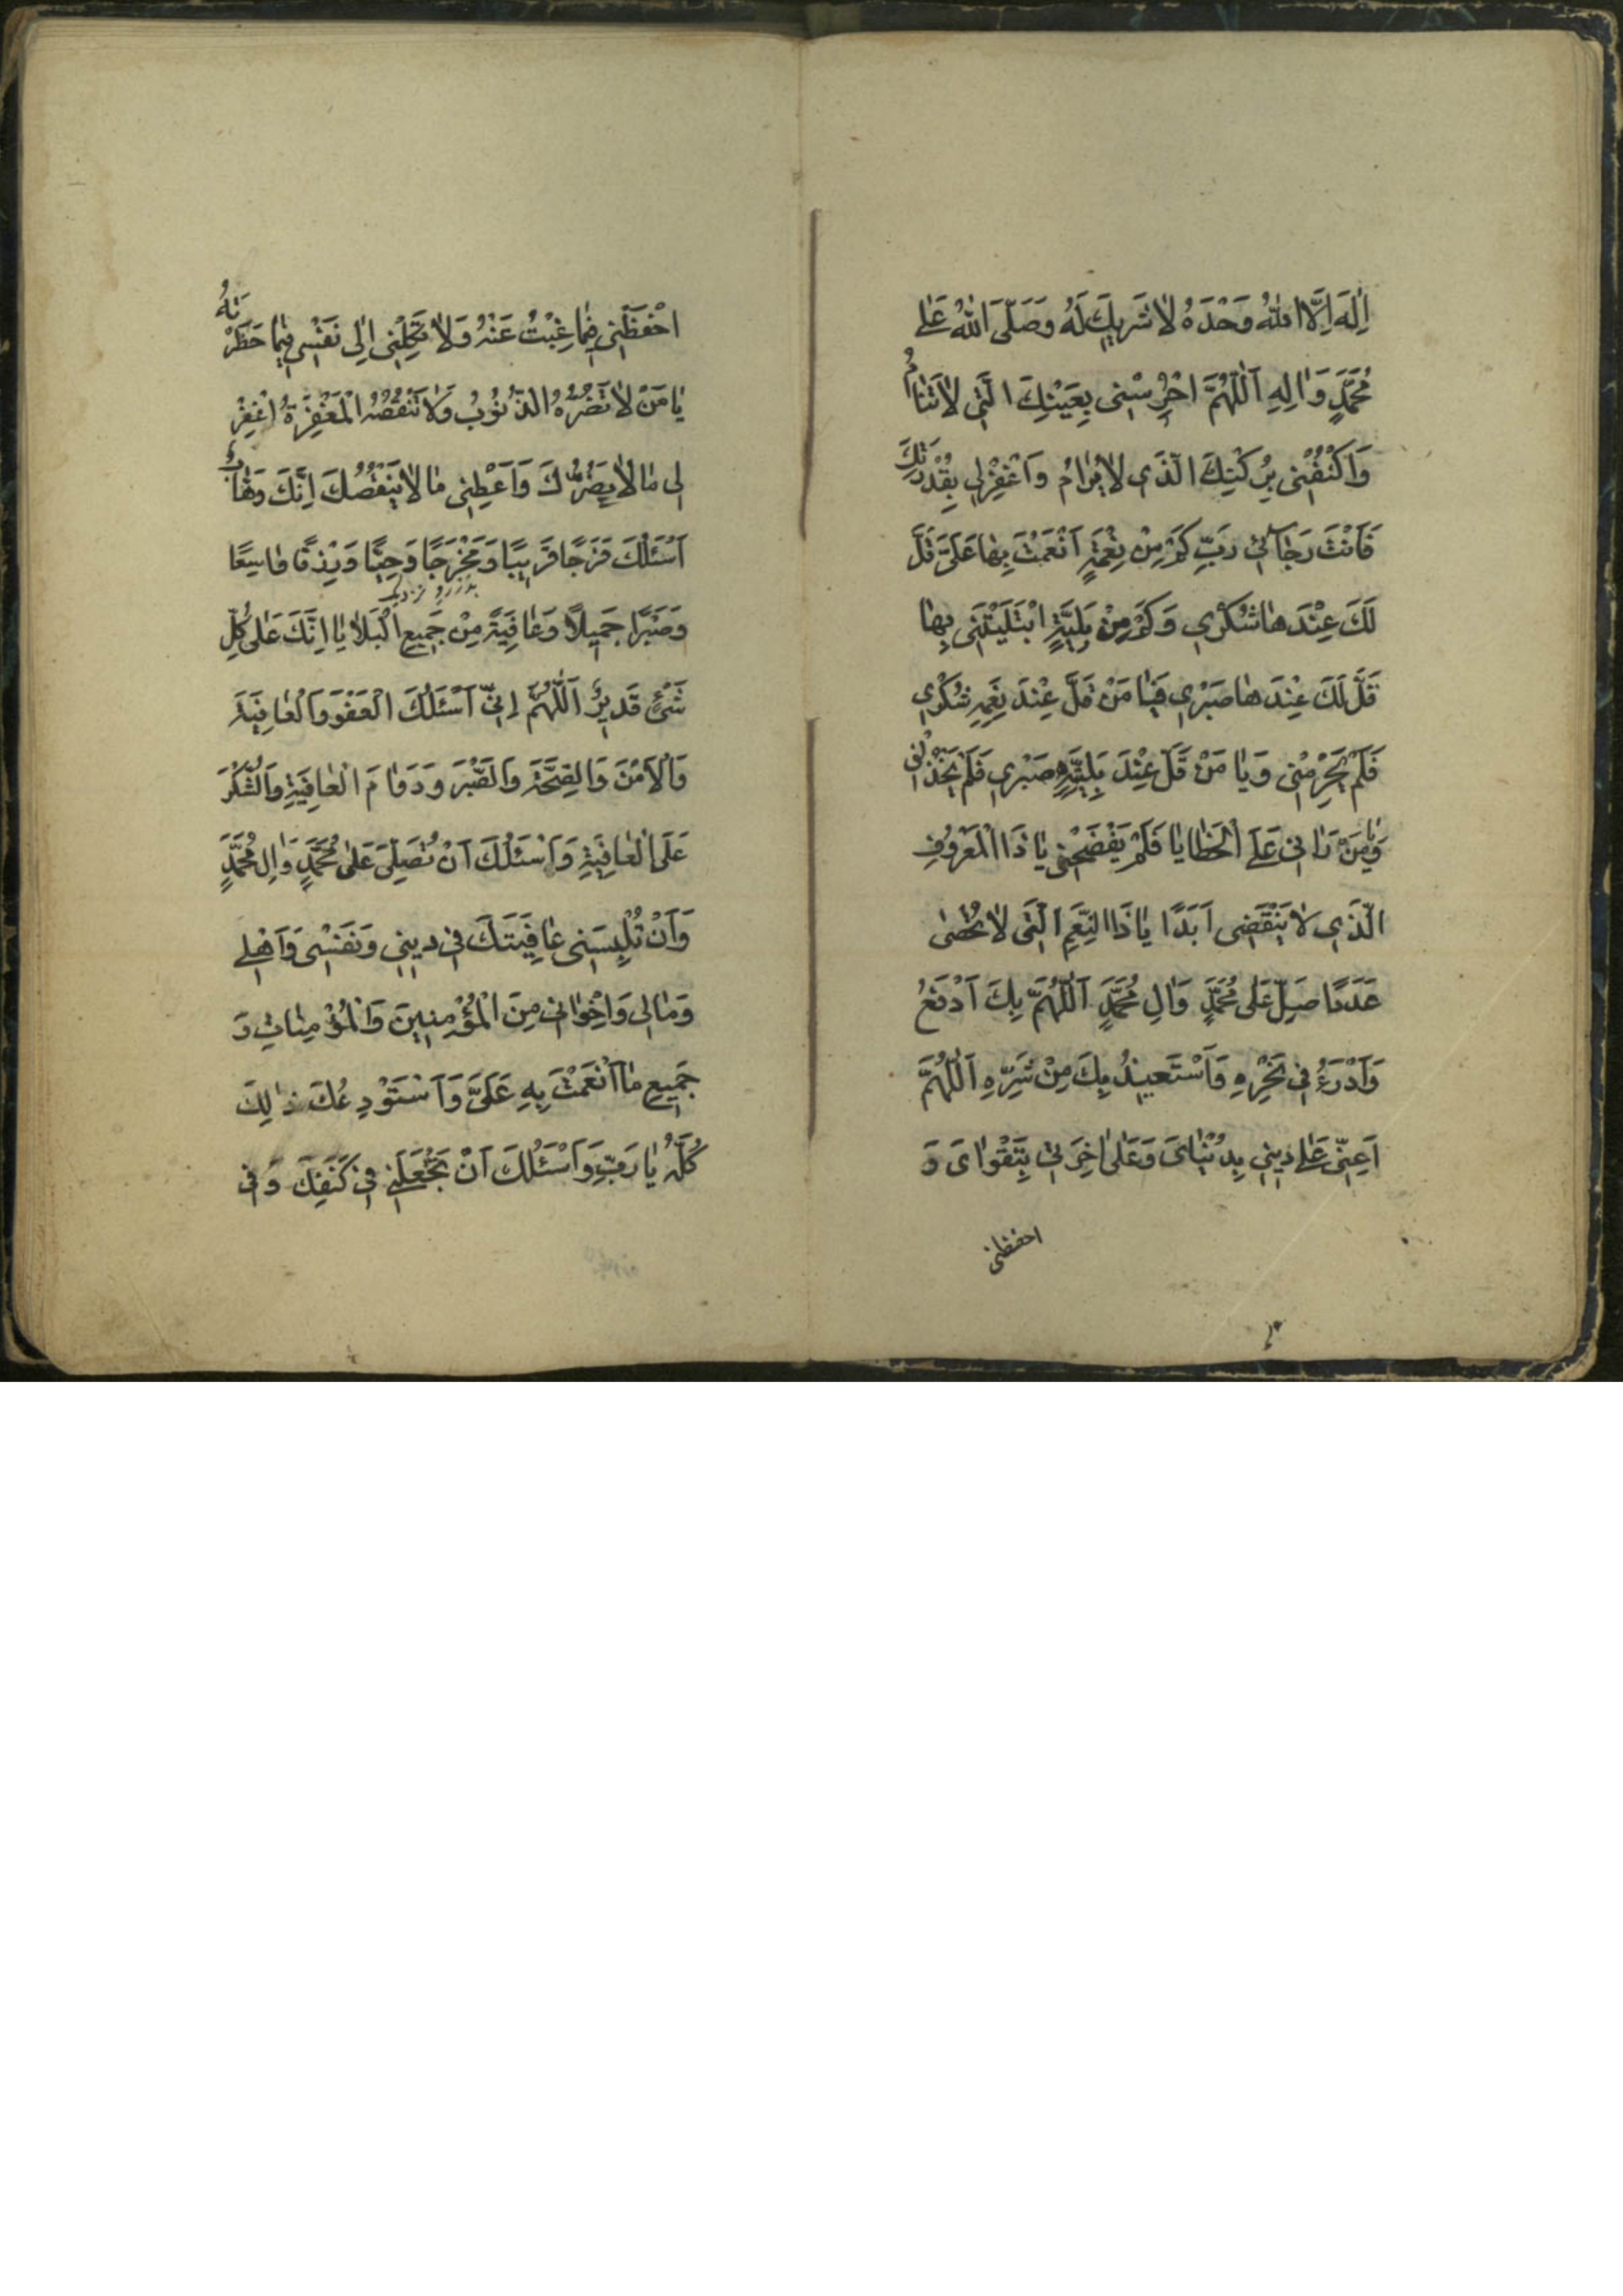 اِلٰهَ اِلَّا اللهُ وَحْدَهُ لٰا شَريكَ لَهُ وَصَلَّى اللهُ عَلٰى
مُحَمَّدٍ وَاٰلِهِ اَللّٰهُمَّ احْرُسْنى بِعَيْنِكَ الَّتى لٰا تَنٰامُ
وَاكْنُفْنى بِرُكْنِكَ الَّذى لٰا يُرٰامُ وَاغْفِرْلى بِقُدْرَتِكَ
فَاَنْتَ رَجٰائى رَبِّ كَمْ مِنْ نِعْمَةٍ اَنْعَمْتَ بِهٰا عَلَىَّ قَلَّ
لَكَ عِنْدَهٰا شُكْرى وَكَمْ مِنْ بَلِيَّةٍ ابْتَلَيْتَنى بِهٰا
قَلَّ لَكَ عِنْدَهٰا صَبْرى فَيٰا مَنْ قَلَّ عِنْدَ نِعَمِهِ شُكْرى
فَلَمْ يَحْرِمْنى وَيٰا مَنْ قَلَّ عِنْدَ بَلِيَّتِهِ صَبْرى فَلَمْ يَخْذُلْنى
وَيٰا مَنْ رَاٰنى عَلَى الْخَطٰايٰا فَلَمْ يَفْضَحْنى يٰا ذَا الْمَعْرُوفِ
الَّذى لٰا يَنْقَضى اَبَدًا يٰا ذَا النِّعَمِ الَّتى لٰا تُحْصٰى
عَدَدًا صَلِّ عَلٰى مُحَمَّدٍ وَاٰلِ مُحَمَّدٍ اَللّٰهُمَّ بِكَ اَدْفَعُ
وَاَدْرَءُ فى نَحْرِهِ وَاَسْتَعيذُ بِكَ مِنْ شَرِّهِ اَللّٰهُمَّ
اَعِنّى عَلٰى دينى بِدُنْيٰاىَ وَعَلٰى اٰخِرَتى بِتَقْوٰاىَ وَ
احفظنى
احْفَظْنى فيمٰا غِبْتُ عَنْهُ وَلٰا تَكِلْنى اِلٰى نَفْسى فيمٰا حَظَرْتَهُ
يٰا مَنْ لٰا تَضُرُّهُ الذُّنُوبُ وَلٰا تَنْقُصُهُ الْمَغْفِرَةُ اغْفِرْ
لى مٰا لٰا يَضُرُّكَ وَاَعْطِنى مٰا لٰا يَنْقُصُكَ اِنَّكَ وَهّٰابٌ
اَسْئَلُكَ فَرَجًا قَريبًا وَمَخْرَجًا وَحِيًّا وَرِزْقًا وٰاسِعًا
وَصَبْرًا جَميلًا وَعٰافِيَةً مِنْ جَميعِ الْبَلٰايٰا اِنَّكَ عَلٰى كُلِّ
شَىْءٍ قَديرٌ اَللّٰهُمَّ اِنّى اَسْئَلُكَ الْعَفْوَ وَالْعٰافِيَةَ
وَالْاَمْنَ وَالصِّحَّةَ وَالصَّبْرَ وَدَوٰامَ الْعٰافِيَةِ وَالشُّكْرَ
عَلَى الْعٰافِيَةِ وَاَسْئَلُكَ اَنْ تُصَلِّىَ عَلٰى مُحَمَّدٍ وَاٰلِ مُحَمَّدٍ
وَاَنْ تُلْبِسَنى عٰافِيَتَكَ فى دينى وَنَفْسى وَاَهْلى
وَمٰالى وَاِخْوٰانى مِنَ الْمُؤْمِنينَ وَالْمُؤْمِنٰاتِ وَ
جَميعِ مٰا اَنْعَمْتَ بِهِ عَلَىَّ وَاَسْتَوْدِعُكَ ذٰلِكَ
كُلَّهُ يٰا رَبِّ وَاَسْئَلُكَ اَنْ تَجْعَلَنى فى كَنَفِكَ وَفى